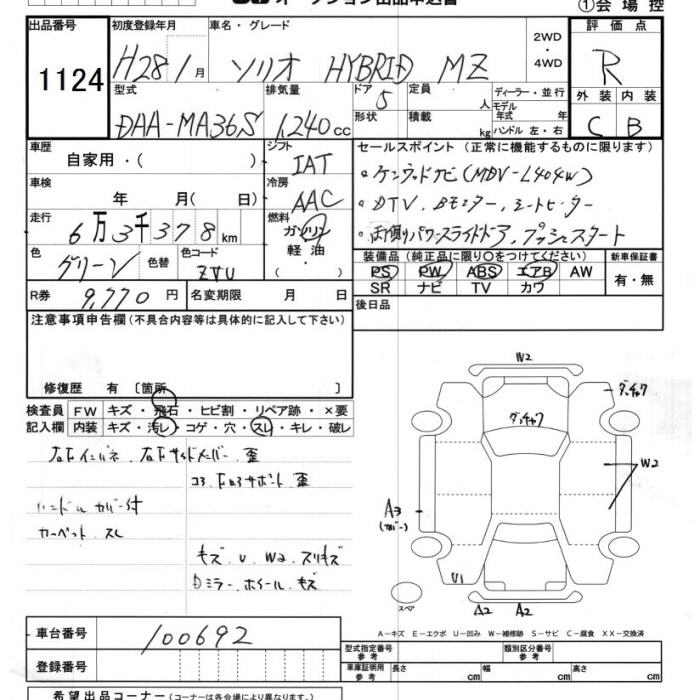 オークション出品申込書
①会場控
出品番号 初度登録年月 車名・グレード 評価点
1124 H28年1月 ソリオ HYBRID MZ 2WD・4WD R
型式 排気量 ドア 5 定員 人 ディーラー・並行 外装 内装
DAA-MA36S 1,240cc 形状 積載 kg モデル年式 年 ハンドル 左・右 C B
車歴 自家用・( ) シフト IAT
セールスポイント (正常に機能するものに限ります)
車検 年 月( 日) 冷房 AAC
・ケンウッドナビ(MDV-L404W)
・DTV、Bモニター、シートヒーター
走行 6万3千378km 燃料 ガソリン 軽油・( )
・両側パワースライドドア、プッシュスタート
色 グリーン 色替 色コード ZVU
装備品 (純正品に限り〇をつけてください) 新車保証書
PS PW ABS エアB AW 有・無
SR ナビ TV カワ
R券 9,770円 名変期限 月 日
後日品
注意事項申告欄(不具合内容等は具体的に記入して下さい)
修復歴 有 〔箇所 〕
検査員 FW キズ・飛石・ヒビ割・リペア跡・×要
記入欄 内装 キズ・汚レ・コゲ・穴・スレ・キレ・破レ
右Fインパネ、右Fサイドメンバー 歪
コアF ロアサポート 歪
ハンドル カバー付
カーペット スレ
キズ U W2 スリキズ
Dミラー、ホイール キズ
W2
ダッチャク
ダッチャク
W2
A3
(カバー)
U1
A2 A2
スペア
A-キズ E-エクボ U-凹み W-補修跡 S-サビ C-腐食 XX-交換済
車台番号 100692
登録番号
型式指定番号 参考 類別区分番号 参考
車庫証明用 参考 長さ cm 幅 cm 高さ cm
希望出品コーナー (コーナーは各会場により異なります。)